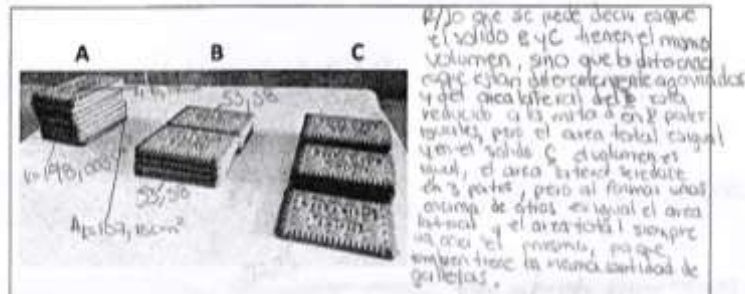 A B C
53,58
53,58
R/ Lo que se puede decir es que
el solido B y C tienen el mismo
volumen, sino que la diferencia
es que estan diferentemente acomodados
y del area lateral del B esta
reducido a la mitad en 2 partes
iguales, pero el area total es igual
y en el solido C el volumen es
igual, el area lateral se reduce
en 3 partes, pero al formar unas
encima de otras es igual el area
lateral y el area total siempre
el mismo, ya que
tambien tiene la misma cantidad de
galletas.